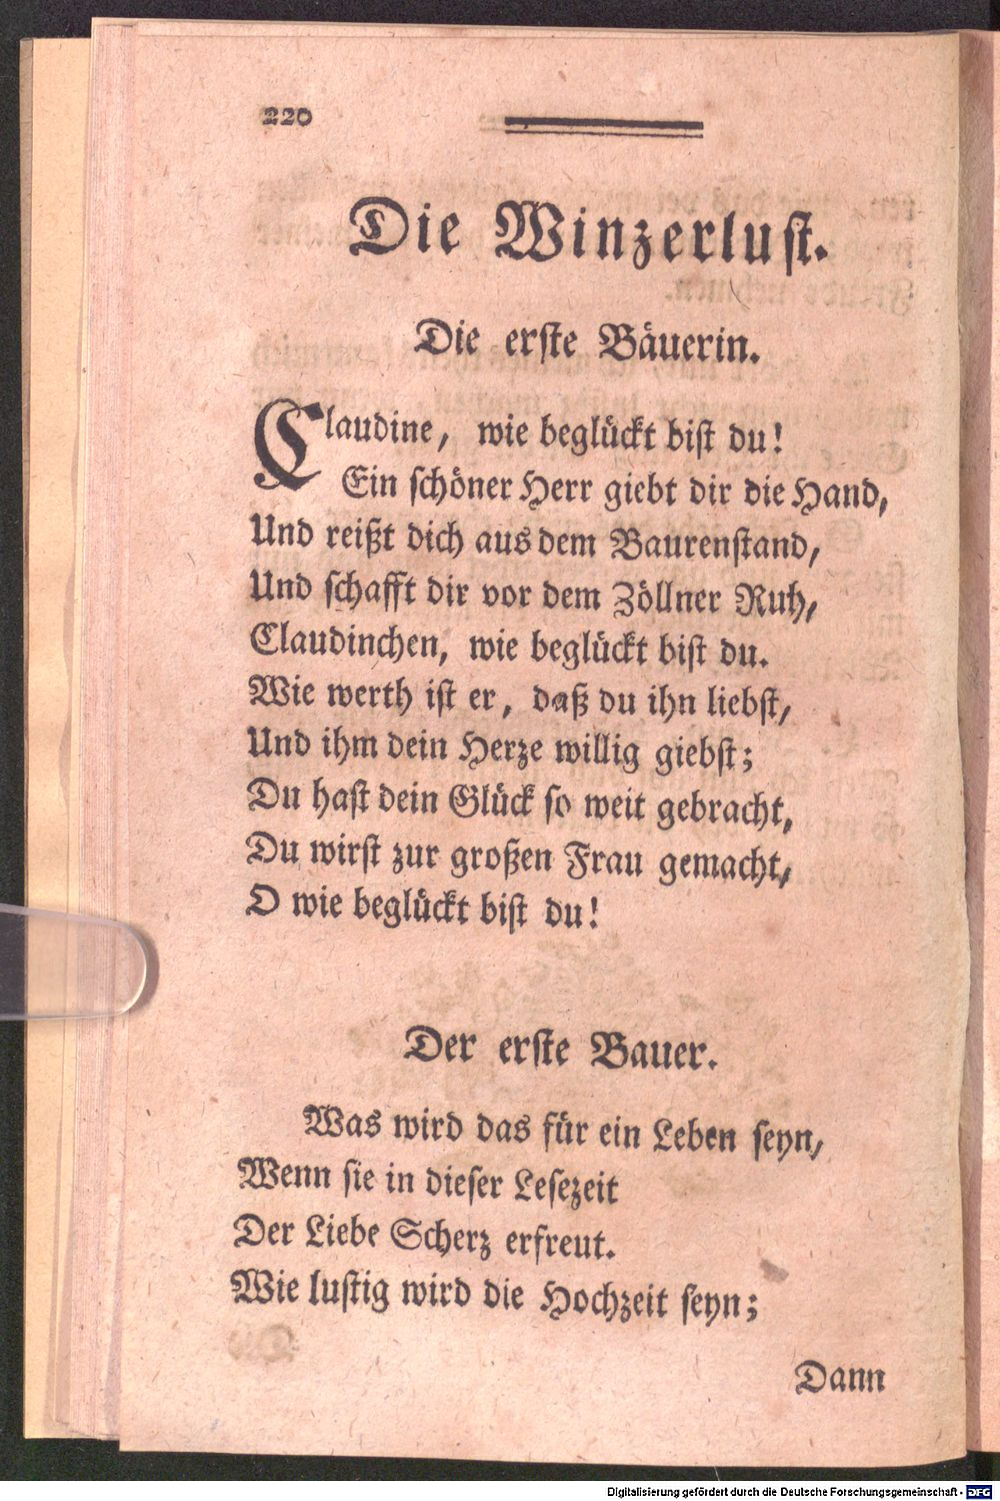 220
Die Winzerlust.
Die erste Bäuerin.
Claudine, wie beglückt bist du!
Ein schöner Herr giebt dir die Hand,
Und reißt dich aus dem Baurenstand,
Und schafft dir vor dem Zöllner Ruh,
Claudinchen, wie beglückt bist du.
Wie werth ist er, daß du ihn liebst,
Und ihm dein Herze willig giebst;
Du hast dein Glück so weit gebracht,
Du wirst zur großen Frau gemacht,
O wie beglückt bist du!
Der erste Bauer.
Was wird das für ein Leben seyn,
Wenn sie in dieser Lesezeit
Der Liebe Scherz erfreut.
Wie lustig wird die Hochzeit seyn;
Dann
Digitalisierung gefördert durch die Deutsche Forschungsgemeinschaft - DFG